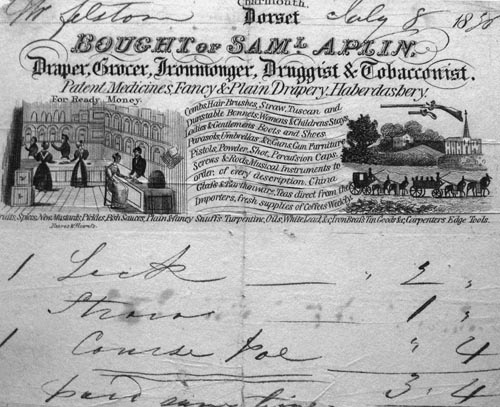 Charmouth,
Mr Felstom Dorset July 8 18
BOUGHT OF SAML. APLIN.
Draper, Grocer, Ironmonger, Druggist & Tobacconist.
Patent Medicines, Fancy & Plain Drapery, Haberdashery.
For Ready Money.
Combs, Hair Brushes, Straw, Tuscan and
Dunstable Bonnets, Womens & Childrens Stays,
Ladies & Gentlemens Boots and Shoes,
Parasols, Umbrellas, &c, Guns, Gun Furniture
Pistols, Powder, Shot, Percussion Caps,
Screws & Rods, Musical Instruments to
order, of every description. China
Glass & Earthenware, Teas direct from the
Importers, fresh supplies of Coffees Weekly.
Fruits, Spices, New Mustards, Pickles, Fish Sauces, Plain & Fancy Snuffs. Turpentine, Oils, White Lead, &c, Iron Brass Tin Goods &c, Carpenters Edge Tools.
1 Lock — " 2 "
— 1 "
1 Course — " 4
3 . 4
paid same time